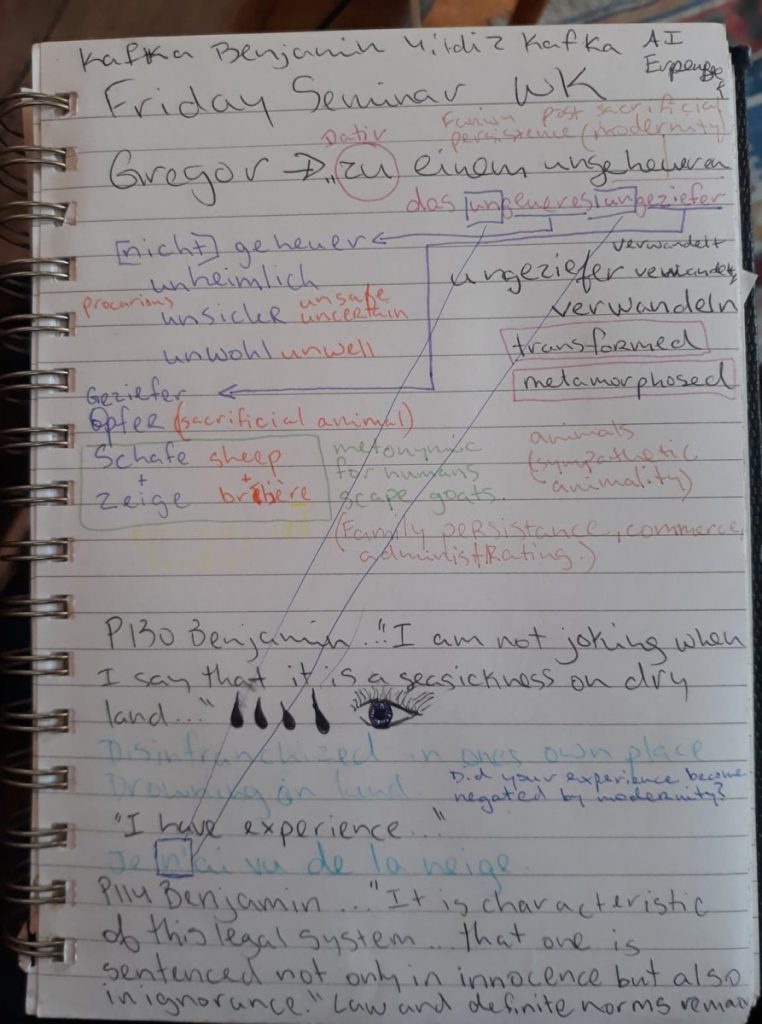 Kafka Benjamin Yildiz Kafka AI
Friday Seminar WK
Dativ
post sacrificial
persistence (modernity)
Gregor → "zu einem ungeheueren
das ungeueres ungeziefer
[nicht] geheuer
verwandelt
unheimlich
ungeziefer
precarious unsafe
unsicker uncertain
verwandeln
unwohl unwell
transformed
metamorphosed
Geziefer
Opfer (sacrificial animal)
Schafe sheep
+ +
Zeige
metonymic
for humans
scape goats
animals
(sympathetic
animality)
(Family persistance, commerce,
administRating.)
P130 Benjamin..."I am not joking when
I say that it is a seasickness on dry
land..."
Disinfranchized in ones own place
Drowning on land.
Did your experience become
negated by modernity?
"I have experience..."
Je n'ai vu de la neige
P114 Benjamin..."It is characteristic
of this legal system...that one is
sentenced not only in innocence but also
in ignorance." Law and definite norms remain